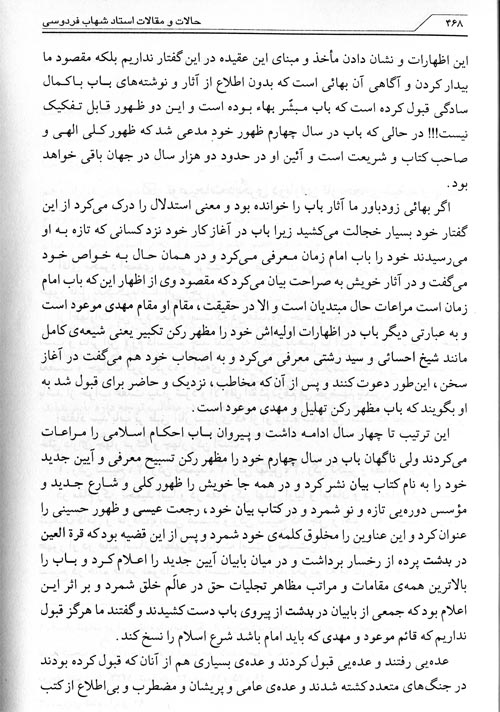 ۴۶۸
حالات و مقالات استاد شهاب فردوسی
این اظهارات و نشان دادن مأخذ و مبنای این عقیده در این گفتار نداریم بلکه مقصود ما
بیدار کردن و آگاهی آن بهائی است که بدون اطلاع از آثار و نوشته‌های باب باکمال
سادگی قبول کرده است که باب مبشّر بهاء بوده است و این دو ظهور قابل تفکیک
نیست!!! در حالی که باب در سال چهارم ظهور خود مدعی شد که ظهور کلی الهی و
صاحب کتاب و شریعت است و آئین او در حدود دو هزار سال در جهان باقی خواهد
بود.
اگر بهائی زودباور ما آثار باب را خوانده بود و معنی استدلال را درک می‌کرد از این
گفتار خود بسیار خجالت می‌کشید زیرا باب در آغاز کار خود نزد کسانی که تازه به او
می‌رسیدند خود را باب امام زمان معرفی می‌کرد و در همان حال به خواص خود
می‌گفت و در آثار خویش به صراحت بیان می‌کرد که مقصود وی از اظهار این که باب امام
زمان است مراعات حال مبتدیان است و الا در حقیقت، مقام او مقام مهدی موعود است
و به عبارتی دیگر باب در اظهارات اولیه‌اش خود را مظهر رکن تکبیر یعنی شیعه‌ی کامل
مانند شیخ احسائی و سید رشتی معرفی می‌کرد و به اصحاب خود هم می‌گفت در آغاز
سخن، این‌طور دعوت کنند و پس از آن که مخاطب، نزدیک و حاضر برای قبول شد به
او بگویند که باب مظهر رکن تهلیل و مهدی موعود است.
این ترتیب تا چهار سال ادامه داشت و پیروان باب احکام اسلامی را مراعات
می‌کردند ولی ناگهان باب در سال چهارم خود را مظهر رکن تسبیح معرفی و آیین جدید
خود را به نام کتاب بیان نشر کرد و در همه جا خویش را ظهور کلی و شارع جدید و
مؤسس دوره‌یی تازه و نو شمرد و در کتاب بیان خود، رجعت عیسی و ظهور حسینی را
عنوان کرد و این عناوین را مخلوق کلمه‌ی خود شمرد و پس از این قضیه بود که قرة العین
در بدشت پرده از رخسار برداشت و در میان بابیان آیین جدید را اعلام کرد و باب را
بالاترین همه‌ی مقامات و مراتب مظاهر تجلیات حق در عالَم خلق شمرد و بر اثر این
اعلام بود که جمعی از بابیان در بدشت از پیروی باب دست کشیدند و گفتند ما هرگز قبول
نداریم که قائم موعود و مهدی که باید امام باشد شرع اسلام را نسخ کند.
عده‌یی رفتند و عده‌یی قبول کردند و عده‌ی بسیاری هم از آنان که قبول کرده بودند
در جنگ‌های متعدد کشته شدند و عده‌ی عامی و پریشان و مضطرب و بی‌اطلاع از کتب